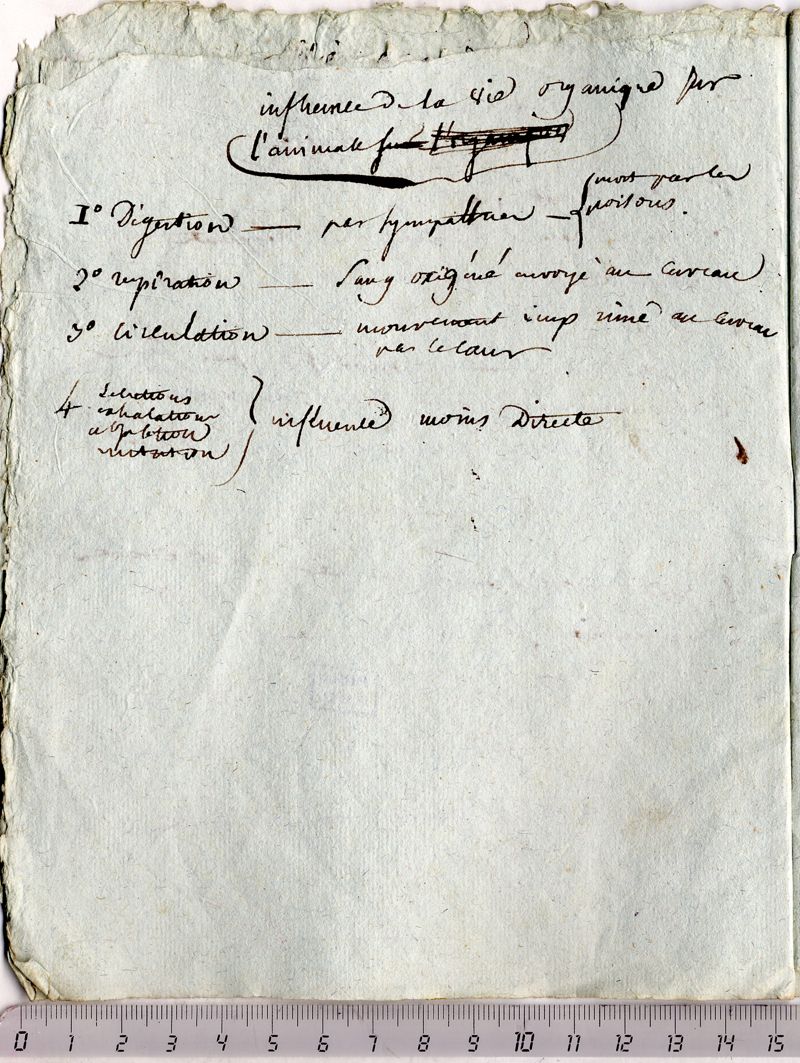 influence de la vie organique sur
l'animale sur l'organique
1° Digestion — par sympathies — { mort par les
poisons.
2° respiration — Sang oxigéné envoyé au cerveau
3° circulation — mouvement imprimé au cerveau
par le cœur
4 Sécrétions
exhalations
absorbtion
nutrition } influence moins directe
0 1 2 3 4 5 6 7 8 9 10 11 12 13 14 15